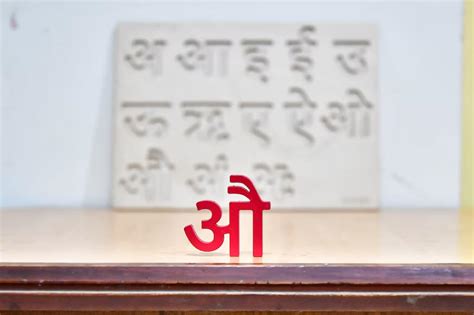 अ आ इ ई उ
ऊ ऋ ए ऐ ओ
औ अं अः
औ